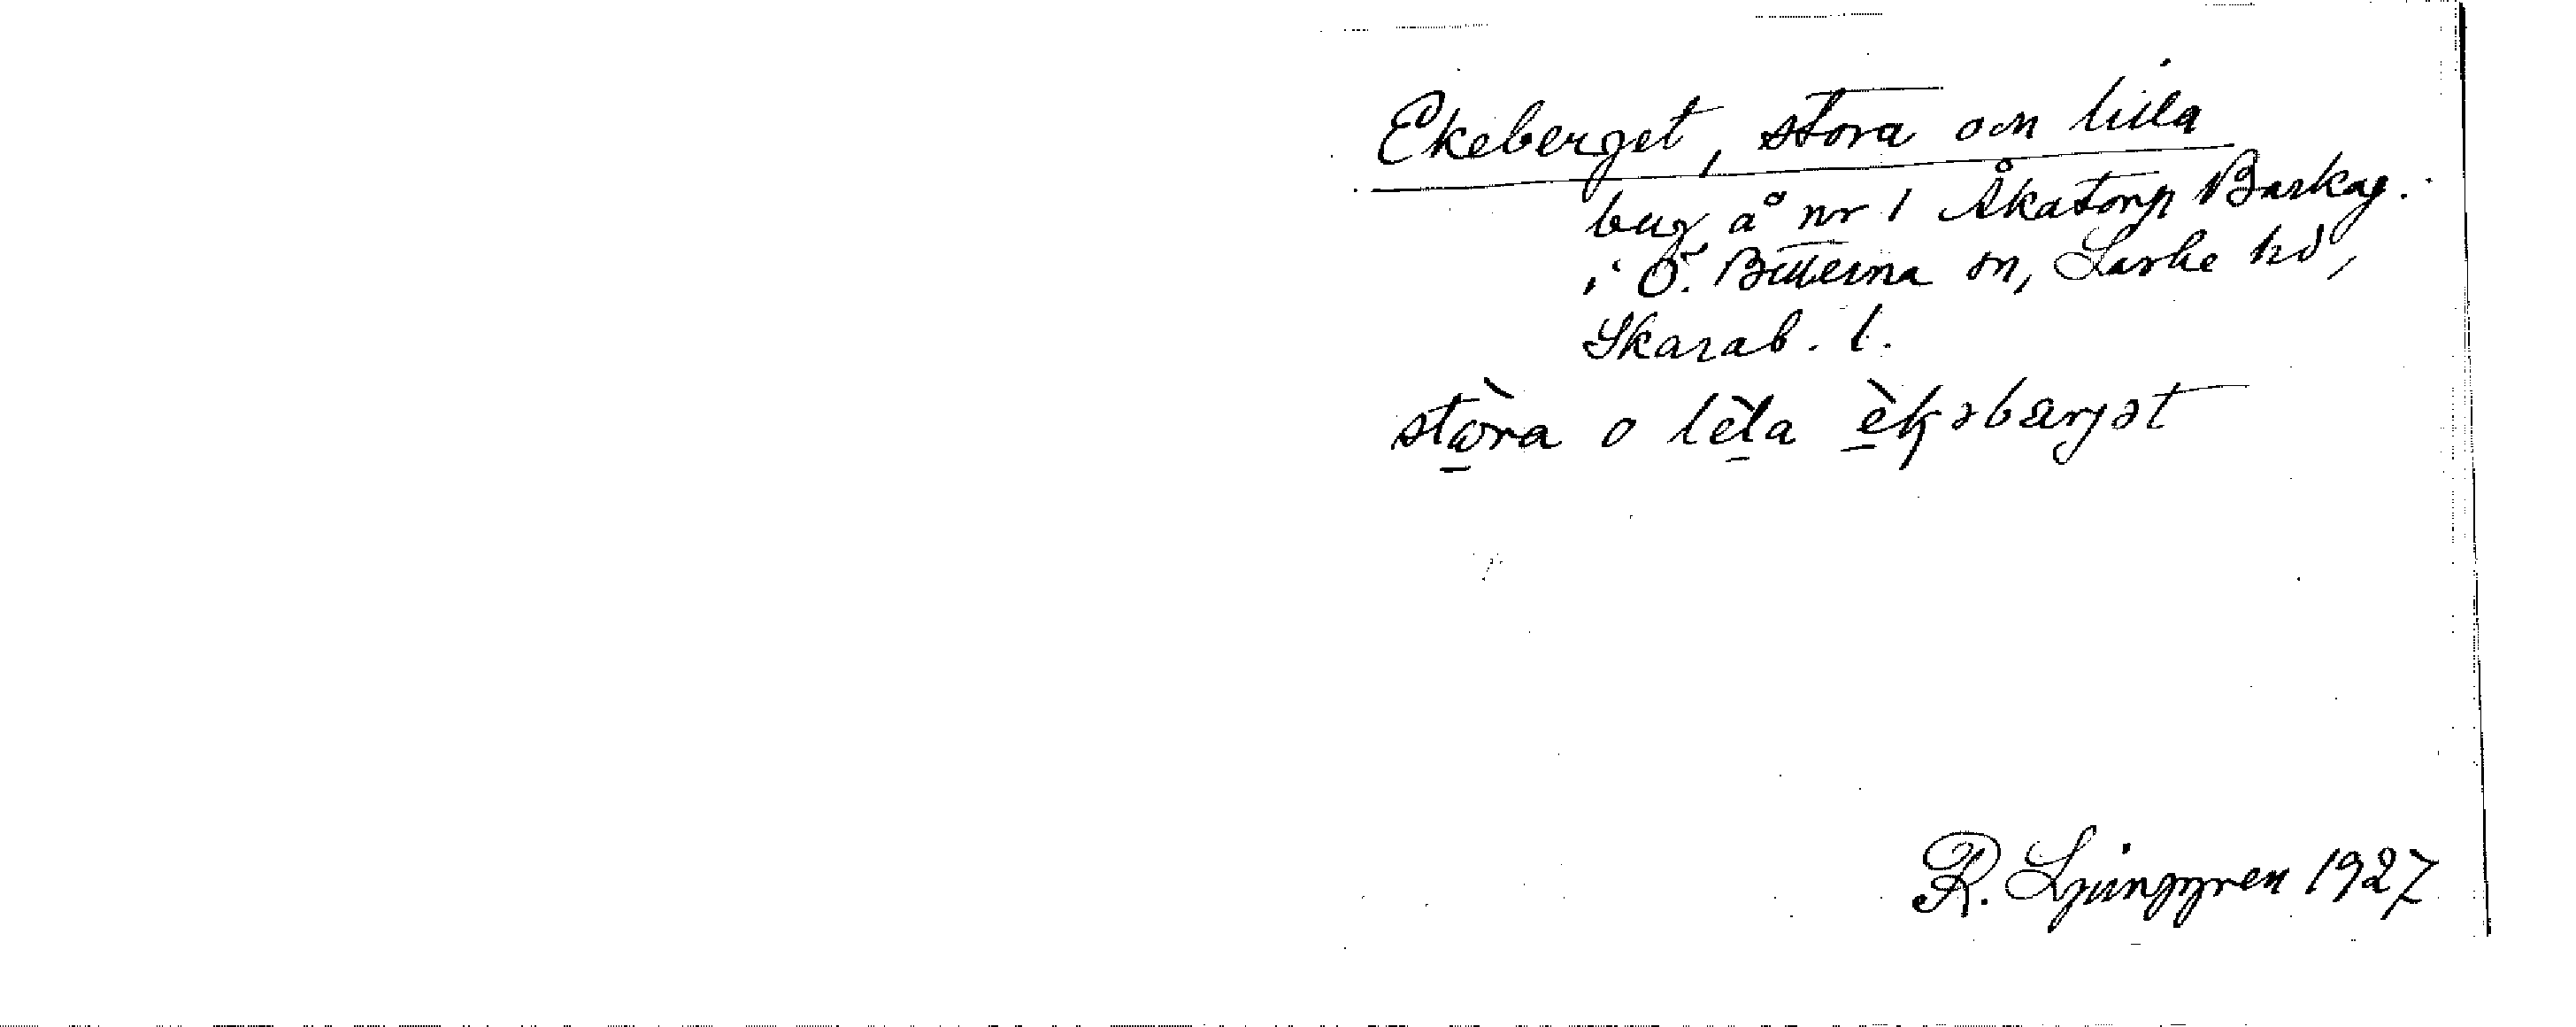 Ekeberget, stora och lilla
berg å nr 1 Åkatorp Baskag.
i Ö. Bitterna sn, Laske hd,
Skarab. l.
stòra o lèla èkəbærjət
R. Ljunggren 1927